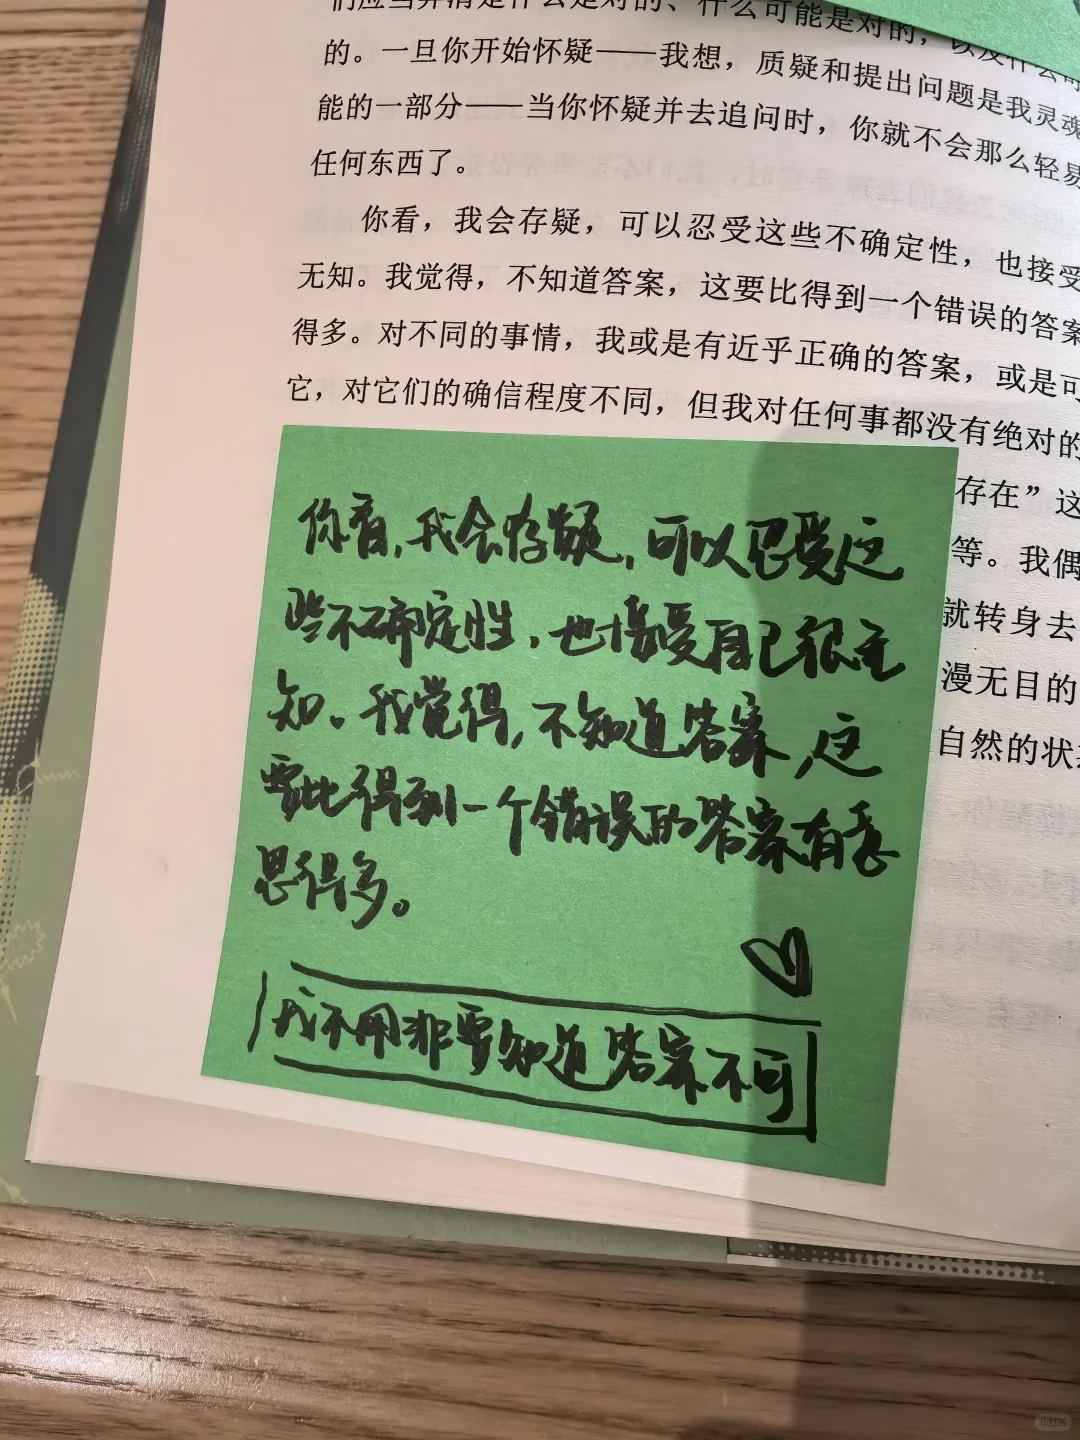 们应当弄清是什么是对的、什么可能是对的，以及什么
的。一旦你开始怀疑——我想，质疑和提出问题是我灵魂
能的一部分——当你怀疑并去追问时，你就不会那么轻易
任何东西了。
你看，我会存疑，可以忍受这些不确定性，也接受
无知。我觉得，不知道答案，这要比得到一个错误的答案
得多。对不同的事情，我或是有近乎正确的答案，或是可
它，对它们的确信程度不同，但我对任何事都没有绝对的
存在”这
等。我偶
就转身去
漫无目的
自然的状
你看，我会存疑，可以忍受这
些不确定性，也接受自己很无
知。我觉得，不知道答案，这
要比得到一个错误的答案有意
思得多。
我不用非要知道答案不可
小红书